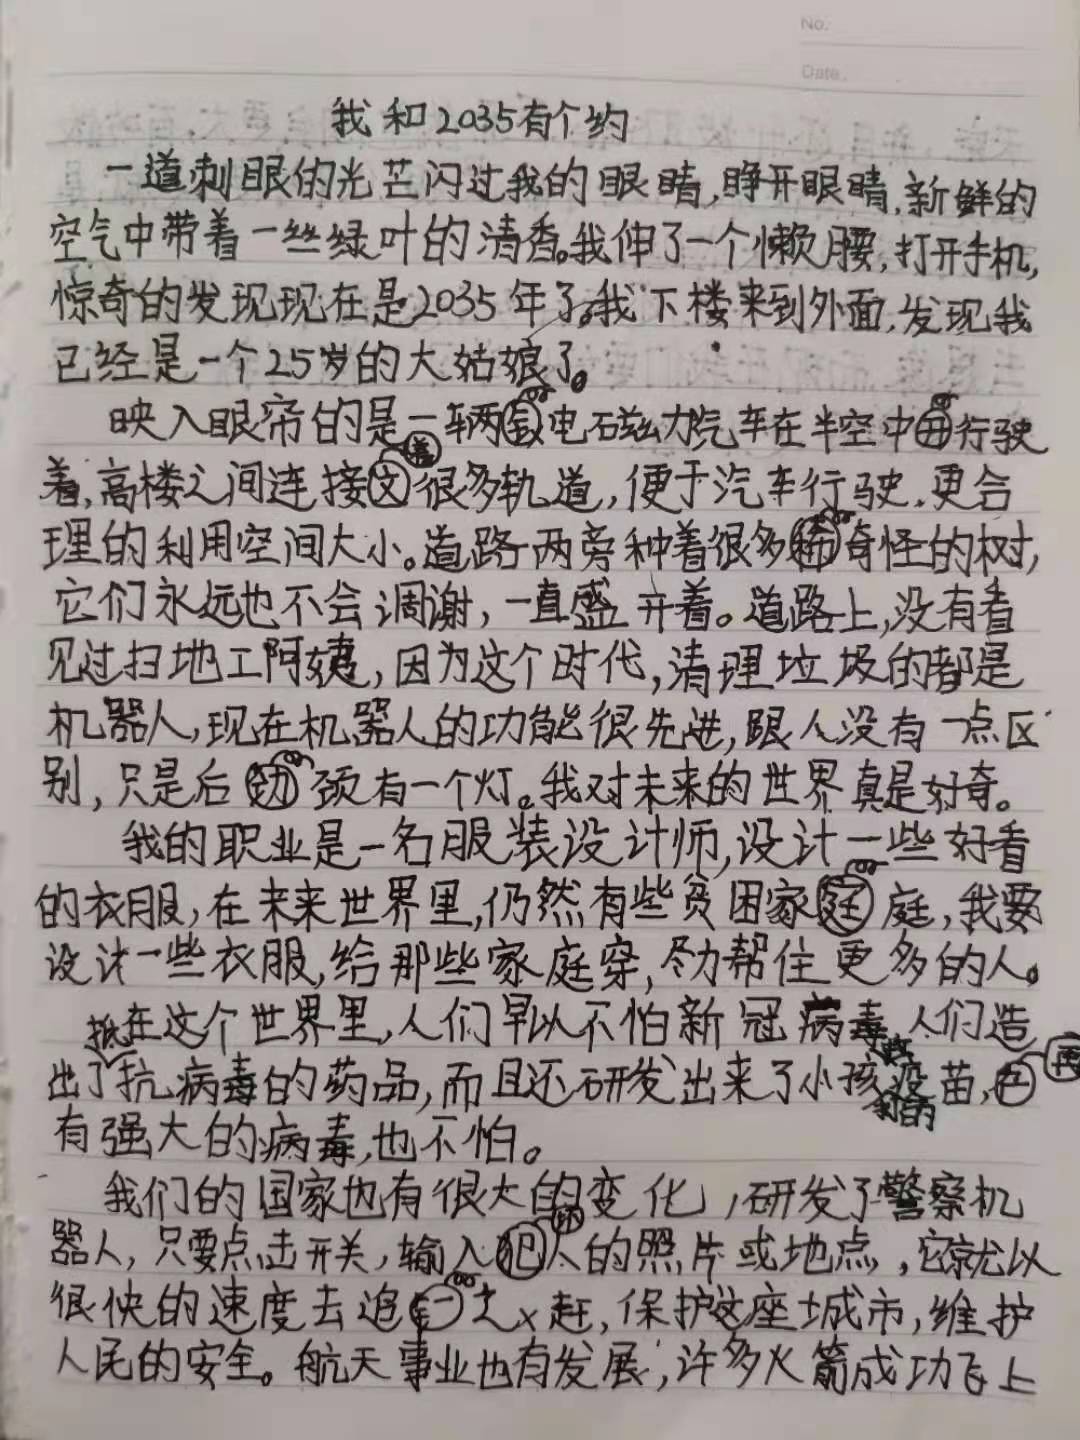 No.
Date.
我和2035有个约
一道刺眼的光芒闪过我的眼睛,睁开眼睛,新鲜的
空气中带着一丝绿叶的清香。我伸了一个懒腰,打开手机,
惊奇的发现现在是2035年了。我下楼来到外面,发现我
已经是一个25岁的大姑娘了。
映入眼帘的是一辆电磁动力汽车在半空中行驶
着,高楼之间连接着很多轨道,便于汽车行驶.更合
理的利用空间大小。道路两旁种着很多奇怪的树,
它们永远也不会调谢,一直盛开着。道路上,没有看
见过扫地工阿姨,因为这个时代,清理垃圾的都是
机器人,现在机器人的功能很先进,跟人没有一点区
别,只是后颈有一个灯。我对未来的世界真是好奇。
我的职业是一名服装设计师,设计一些好看
的衣服,在未来世界里,仍然有些贫困家庭,我要
设计一些衣服,给那些家庭穿,尽力帮住更多的人。
在这个世界里,人们早以不怕新冠病毒,人们造
出了抵抗病毒的药品,而且还研发出来了小孩打的疫苗,再
有强大的病毒,也不怕。
我们的国家也有很大的变化,研发了警察机
器人,只要点击开关,输入坏人的照片或地点,它就以
很快的速度去追赶,保护这座城市,维护
人民的安全。航天事业也有发展,许多火箭成功飞上